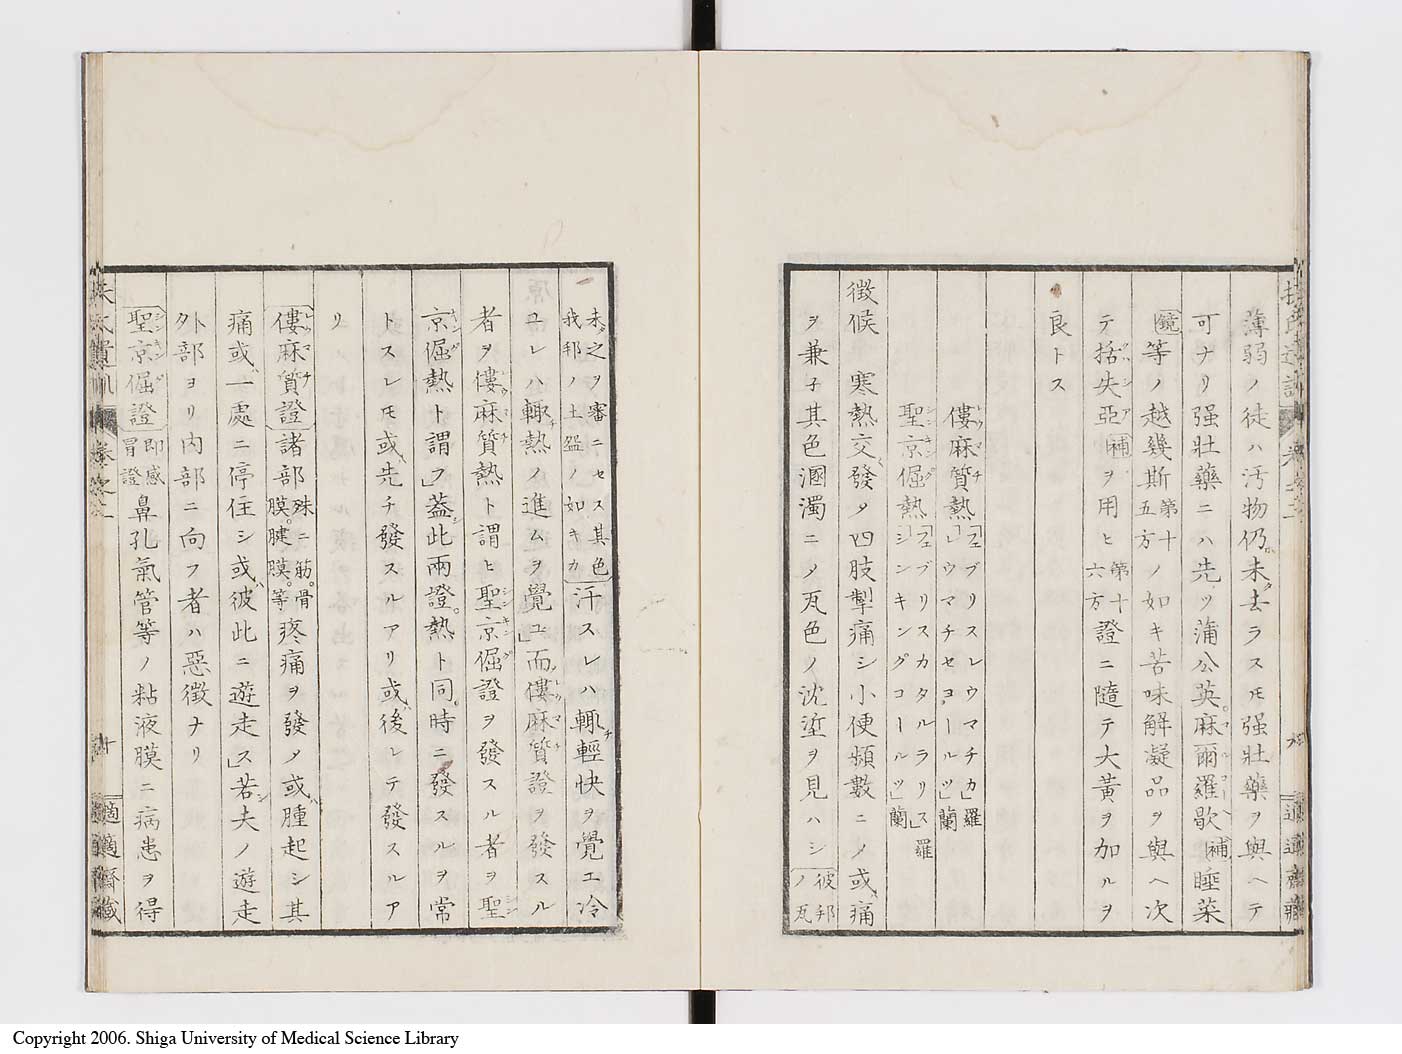 薄弱ノ徒ハ汚物仍未去ラスモ强壯藥ヲ與ヘテ
可ナリ强壯藥ニハ先ツ蒲公英。麻爾羅歇補睡菜
鏡等ノ越幾斯第十五方ノ如キ苦味解凝品ヲ與ヘ次
テ括失亞補ヲ用ヒ第十六方證ニ隨テ大黃ヲ加ルヲ
良トス
僂麻質熱「フェブリスレウマチカ」羅「レウマチセヨールツ」蘭
聖京倔熱「フェブリスカタルラリス」羅「シンキングコールツ」蘭
徴候 寒熱交發シテ四肢掣痛シ小便頻數ニシテ或痛
ヲ兼子其色溷濁ニシテ瓦色ノ沈堊ヲ見ハシ彼邦ノ瓦
未之ヲ審ニセス其色我邦ノ土盌ノ如キカ汗スレハ輙輕快ヲ覺エ冷
ユレハ輙熱ノ進ムヲ覺ユ」而僂麻質證ヲ發スル
者ヲ僂麻質熱ト謂ヒ聖京倔證ヲ發スル者ヲ聖
京倔熱ト謂フ」葢此兩證。熱ト同。時ニ發スルヲ常
トスレモ或先チ發スルアリ或後レテ發スルア
リ
僂麻質證諸部殊ニ筋。骨膜。腱膜。等疼痛ヲ發シテ或腫起シ其
痛或一處ニ停住シ或彼此ニ遊走ス」若夫ノ遊走
外部ヨリ內部ニ向フ者ハ惡徴ナリ
聖京倔證即感冒證鼻孔氣管等ノ粘液膜ニ病患ヲ得
適適齋藏
Copyright 2006. Shiga University of Medical Science Library